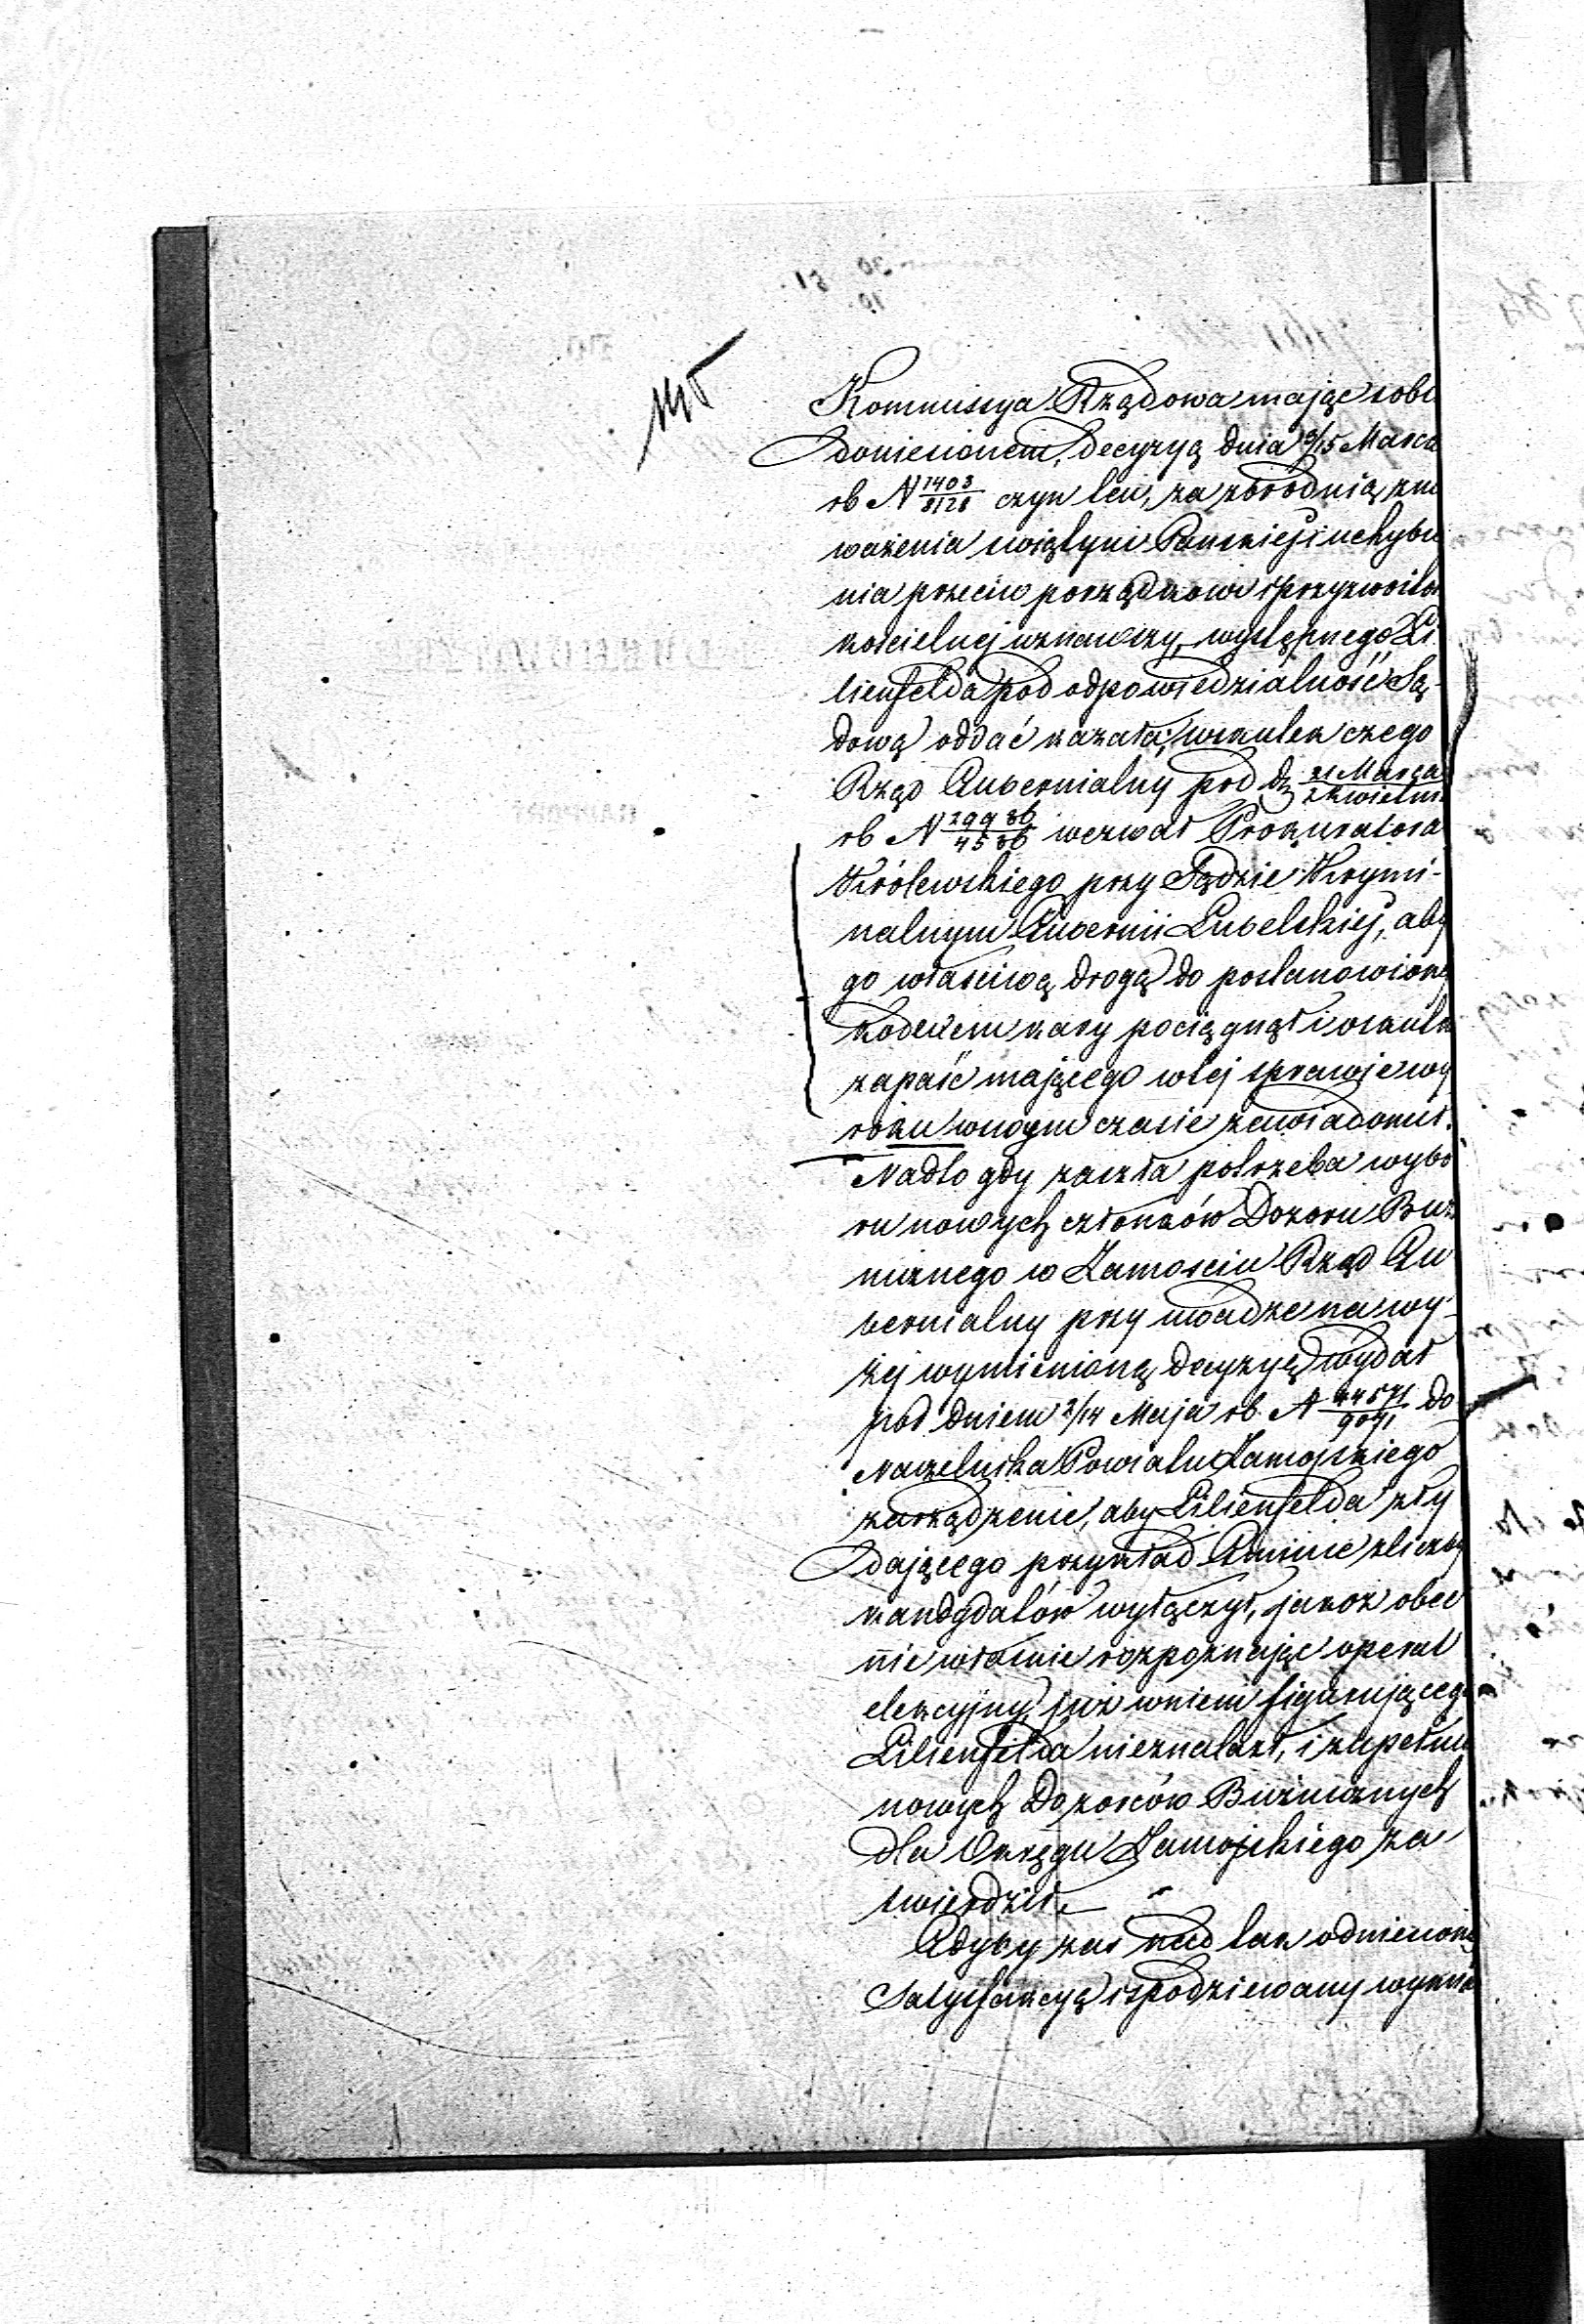 Kommissya Rządowa mając sobi
doniesionem, decyzyą dnia 3/15 Marca
rb N 1403/8128 czyn ten, za zbrodnią znie
ważenia swiątyni Pańskiej i uchybie
nia przeciw porządkowi i przyzwoitoś
kościelnej uznawszy, występnego Li
lienfelda pod odpowiedzialność Są-
dową oddać kazała; wskutek czego
Rząd Gubernialny pod d. 21 Marca/2 Kwietni
rb N 29936/4536 wezwał Prokuratora
Królewskiego przy Sądzie Krymi-
nalnym Gubernii Lubelskiej, aby
go właściwą drogą do postanowioné
kodexem kary pociągnął i oskutk
zapaść mającego w tej sprawie wy
roku w swoym czasie zawiadomił.
Nadto gdy zaszła potrzeba wybo
ru nowych członków Dozoru Buż
nicznego w Zamościu Rząd Gu
bernialny przy uwadze na wy-
żej wymienioną decyzyą wydał
pod dniem 2/14 Maja rb. N 44571/9071 do
Naczelnika Powiatu Zamojskiego
zarządzenie, aby Lilienfelda zły
dającego przykład Gminie z liczby
kandydatów wyłączył, jakoż obec
nie właśnie rozpoznając operat
elekcyjny, już w niem figurującego
Lilienfelda nieznalazł, i zupełnie
nowych Dozorców Bużnicznych
dla Okręgu Zamojskiego za
twierdził.
Gdyby zaś nad tak odniesioną
Satysfakcyą i spodziewany wymia